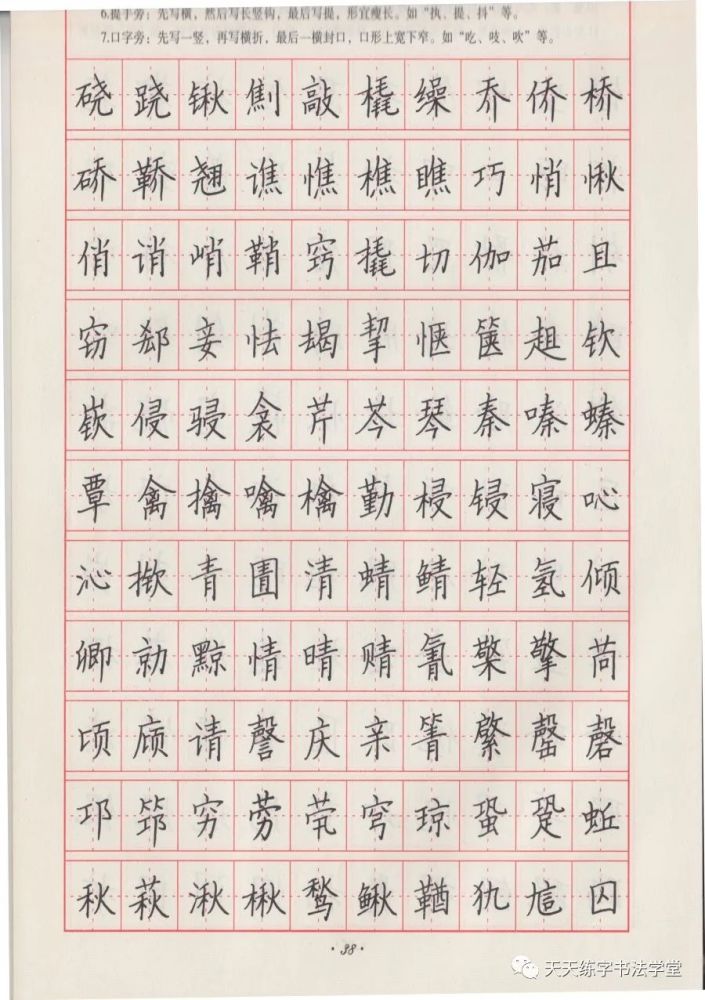 6.提手旁：先写横，然后写长竖钩，最后写提，形宜瘦长。如“执、提、抖”等。
7.口字旁：先写一竖，再写横折，最后一横封口，口形上宽下窄。如“吃、吱、吹”等。
硗跷锹劁敲橇缲乔侨桥
硚鞒翘谯憔樵瞧巧悄愀
俏诮峭鞘窍撬切伽茄且
窃郄妾怯朅挈惬箧趄钦
嵚侵骎衾芹芩琴秦嗪螓
覃禽擒噙檎勤梫锓寝吣
沁揿青圊清蜻鲭轻氢倾
卿勍黥情晴䞍氰檠擎苘
顷庼请謦庆亲箐綮罄磬
邛筇穷䓖茕穹琼蛩跫蚯
秋萩湫楸鹙鳅鞧犰訄囚
·38·
天天练字书法学堂